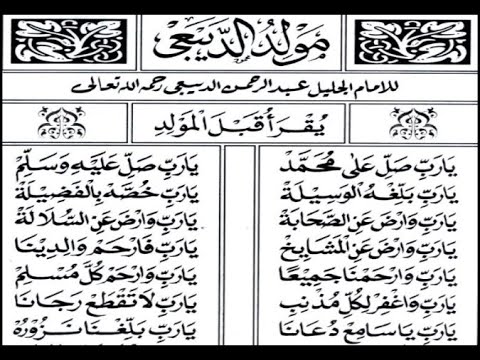 مَوْلِدُ الدِّيبَعِيْ
للامام الجليل عبد الرحمن الديبعي رحمه الله تعالى
يُقْرَأُ قَبْلَ الْمَوْلِدِ
يَارَبِّ صَلِّ عَلَى مُحَمَّدْ يَارَبِّ صَلِّ عَلَيْهِ وَسَلِّمْ
يَارَبِّ بَلِّغْهُ الْوَسِيلَةْ يَارَبِّ خُصَّهُ بِالْفَضِيلَةْ
يَارَبِّ وَارْضَ عَنِ الصَّحَابَةْ يَارَبِّ وَارْضَ عَنِ السُّلَالَةْ
يَارَبِّ وَارْضَ عَنِ الْمَشَايِخْ يَارَبِّ فَارْحَمْ وَالِدِيْنَا
يَارَبِّ وَارْحَمْنَا جَمِيْعًا يَارَبِّ وَارْحَمْ كُلَّ مُسْلِمْ
يَارَبِّ وَاغْفِرْ لِكُلِّ مُذْنِبْ يَارَبِّ لَا تَقْطَعْ رَجَانَا
يَارَبِّ يَا سَامِعْ دُعَانَا يَارَبِّ بَلِّغْنَا نَزُوْرُهْ